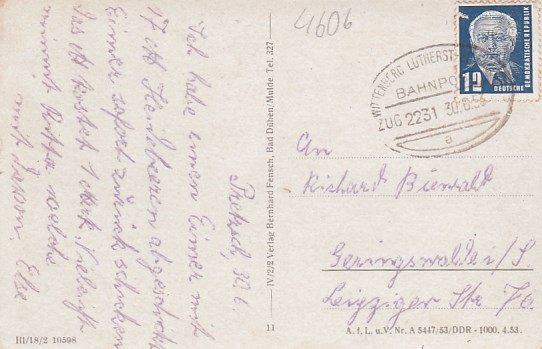 4606
12
DEUTSCHE
DEMOKRATISCHE REPUBLIK
WITTENBERG LUTHERST
BAHNPO
ZUG 2231 30.6.
a
Pretzsch, 30.6.
Ich habe einen Eimer mit
17 ℔ Heidelbeeren abgeschickt
Eimer sofort zurück schicken
Das ℔ kostet 1 Mark. Vielleicht
nimmt Rittha welche
mit Essen. Else
IV/2/2 Verlag Bernhard Fensch, Bad Düben/Mulde Tel. 327
An
Richard
Geringswalde i/S
Leipziger Str 76.
III/18/2 10598
11
A. f. L. u. V. Nr. A 5447/53/DDR - 1000. 4.53.